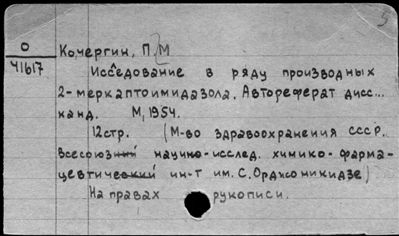 5
О
41617
Кочергин, П. М
Исследование в ряду производных
2-меркаптоимидазола. Автореферат дисс...
канд. М, 1954.
12стр. (М-во здравоохранения СССР.
Всесоюзный научно-исслед. химико-фарма-
цевтический ин-т им. С. Орджоникидзе)
На правах рукописи.